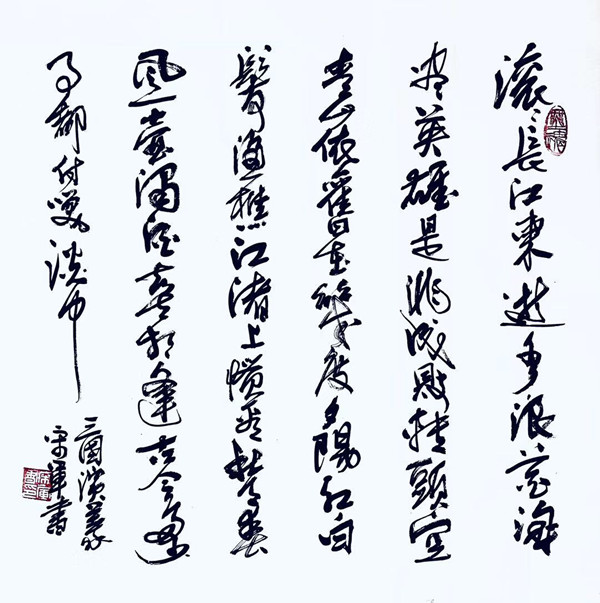 滚〻長江東逝水浪花淘
尽英雄是非成敗转頭空
青山依舊在幾度夕陽红白
髮渔樵江渚上惯看秋月春
風一壶濁酒喜相逢古今多少
事都付笑谈中
三國演義
宋軍書